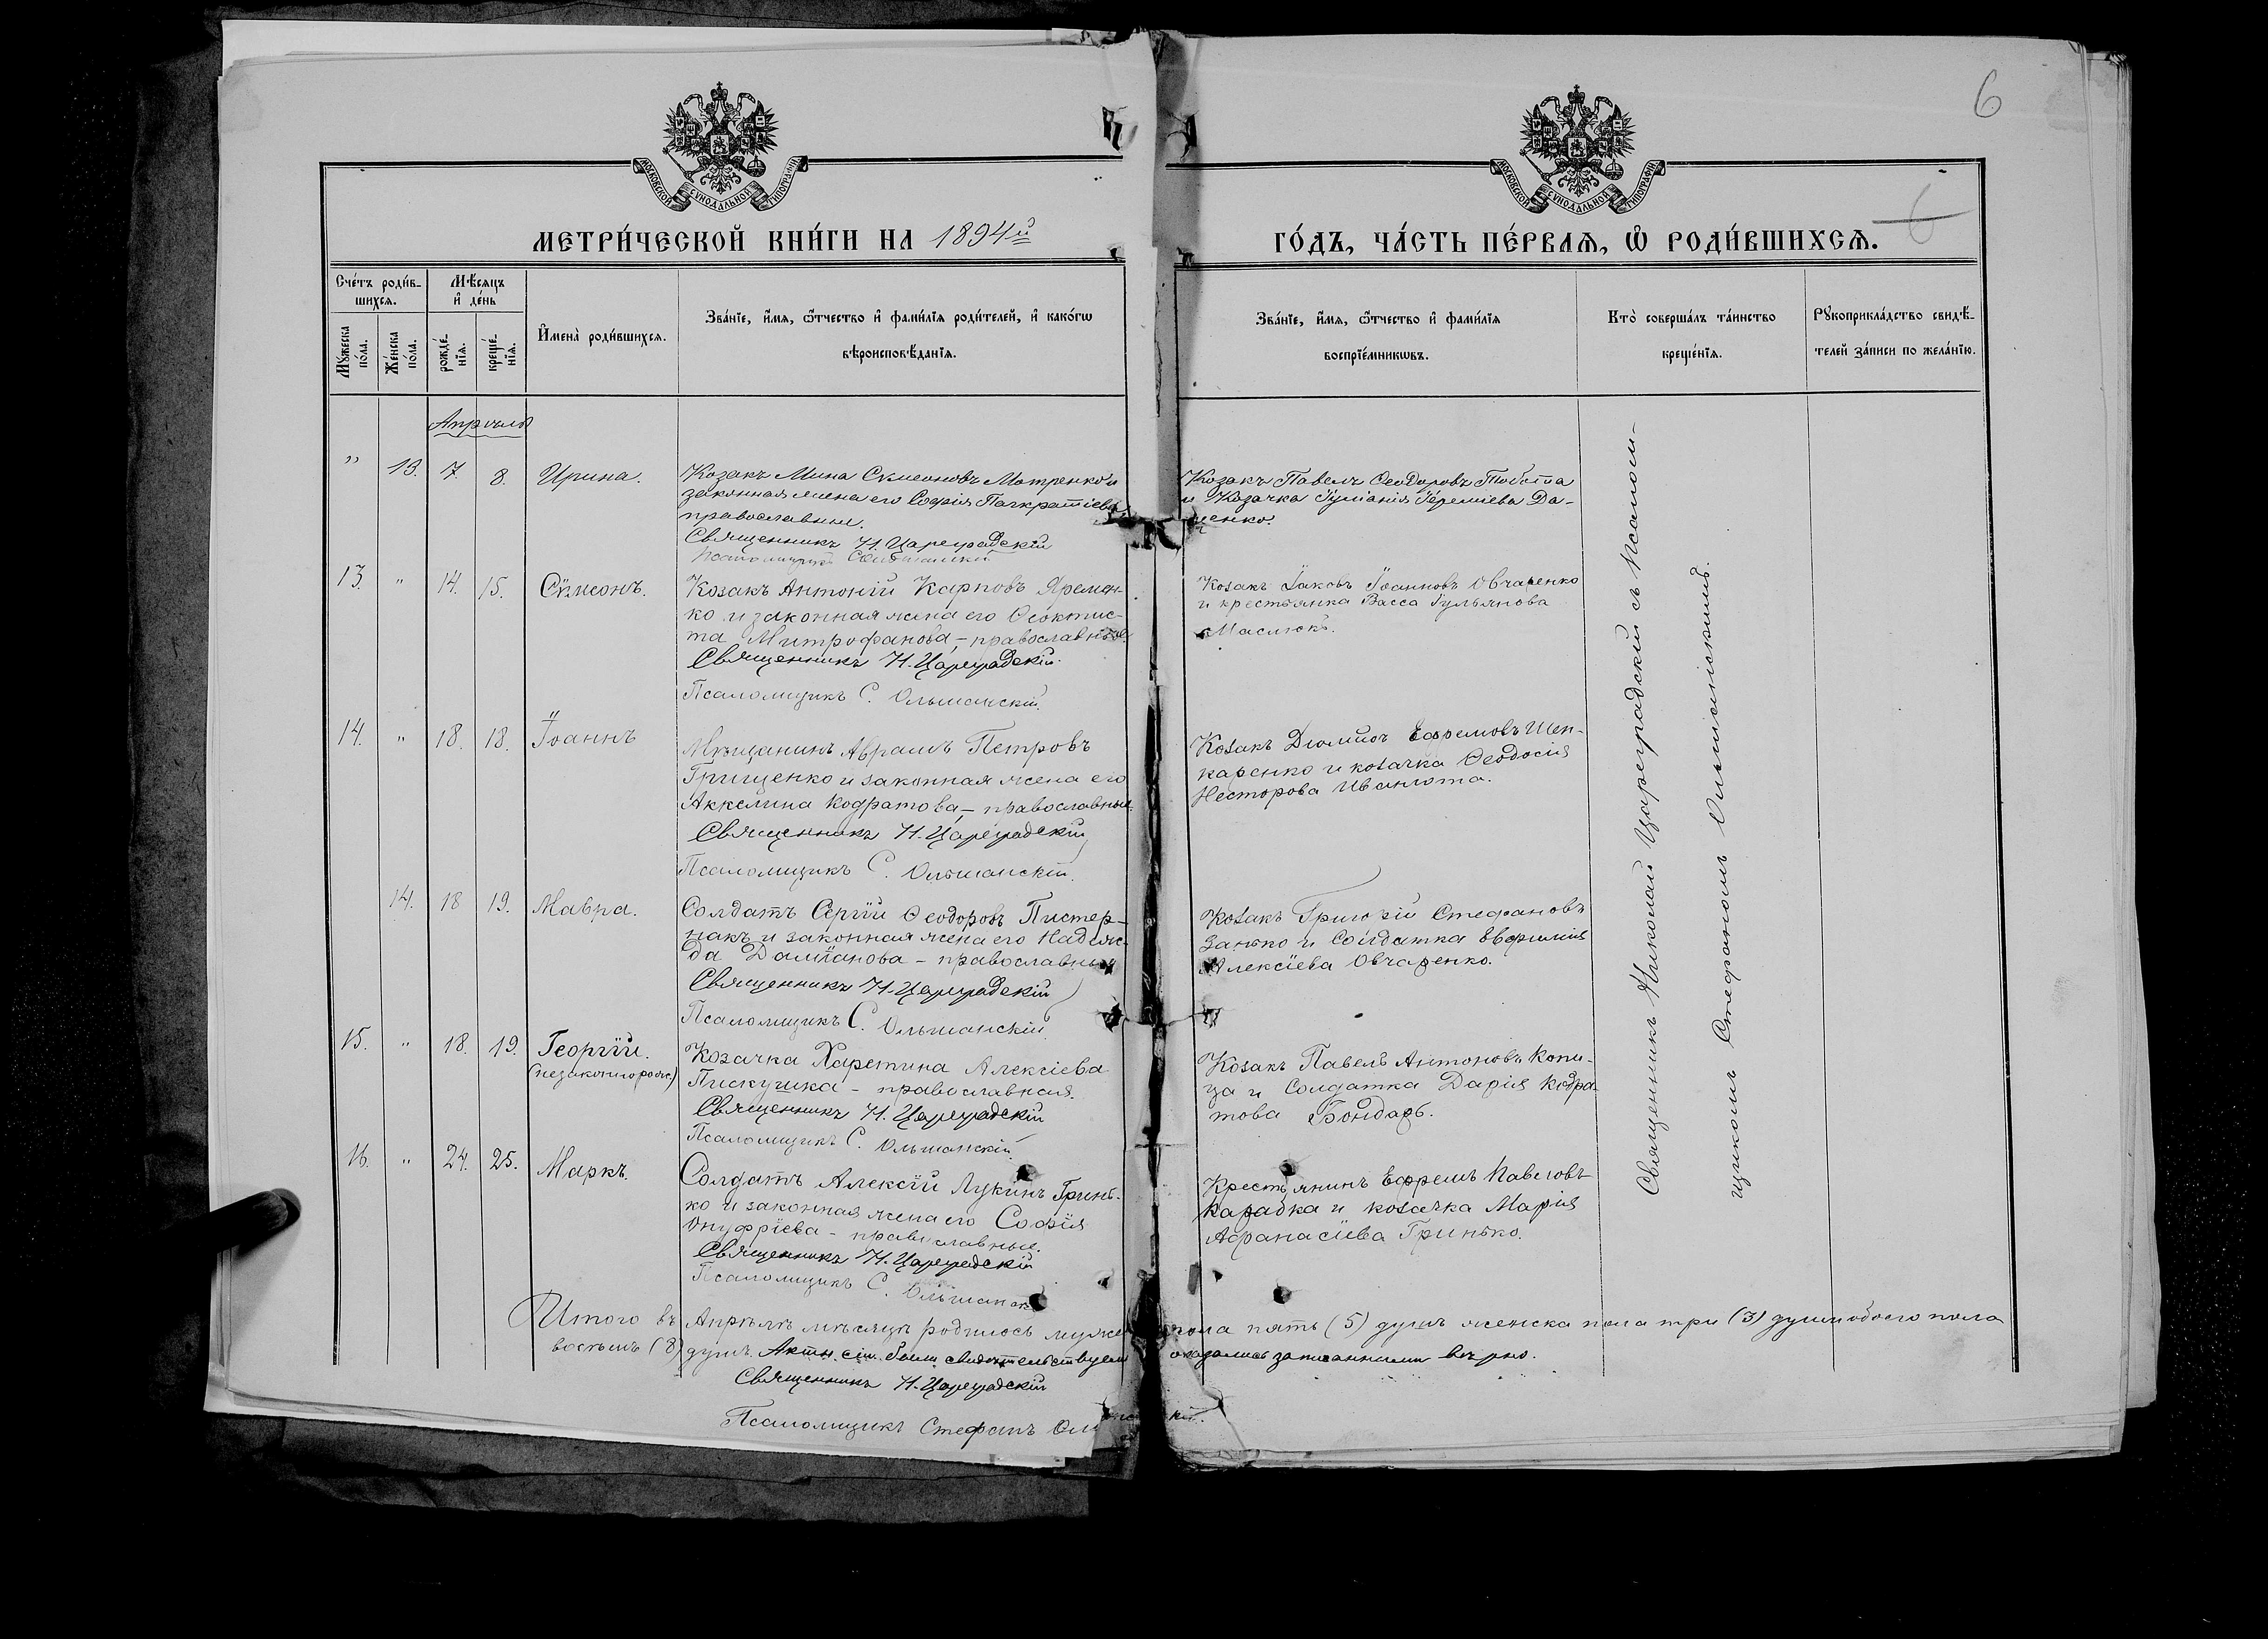 6
6
МОСКОВСКОЙ СѴНОДАЛЬНОЙ ТИПОГРАФІИ
МОСКОВСКОЙ СѴНОДАЛЬНОЙ ТИПОГРАФІИ
МЕТРИ́ЧЕСКОЙ КНИ́ГИ НА 1894й
ГО́ДЪ, ЧА́СТЬ ПЕ́РВАѦ, Ѽ РОДИ́ВШИХСѦ.
Сче́тъ роди́в-
шихсѧ.
Мꙋ́жеска
по́ла.
Же́нска
по́ла.
Мѣ́сѧцъ
и҆ де́нь
рожде́-
нїѧ.
креще́-
нїѧ.
И҆мена̀ роди́вшихсѧ.
Зва́нїе, и҆́мѧ, ѻ҆́тчество и҆ фами́лїѧ роди́телей, и҆ како́гѡ
вѣроисповѣ́данїѧ.
Зва́нїе, и҆́мѧ, ѻ҆́тчество и҆ фами́лїѧ
воспрїе́мникѡвъ.
Кто̀ соверша́лъ та́инство
креще́нїѧ.
Рꙋкоприкла́дство свидѣ́-
телей за́писи по жела́нїю.
Апрѣль
" 13. 7. 8. Ирина.
Козакъ Мина Сѵмеоновъ Мотренко и
законная жена его Софія Панкратіева
православные.
Священникъ Н. Цареградскій
Псаломщикъ С. Ольшанскій
Козакъ Павелъ Ѳеодоровъ
и Козачка Іуліанія Іереміева Да-
ценко.
13. " 14. 15. Сѵмеонъ.
Козакъ Антоній Карповъ Яремен-
ко и законная жена его Ѳеоктис-
та Митрофанова, - православные.
Священникъ Н. Цареградскій.
Псаломщикъ С. Ольшанскій.
Козакъ Іаковъ Іоанновъ Овчаренко
и крестьянка Васса Гульянова
Маслюкъ.
14. " 18. 18. Іоаннъ
Мѣщанинъ Аврамъ Петровъ
Грищенко и законная жена его
Аккелина Кодратова, - православные.
Священникъ Н. Цареградскій
Псаломщикъ С. Ольшанскій.
Козакъ Ефремовъ Шен-
каренко и козачка Ѳеодосія
Несторова Иванюта.
14. 18 19. Мавра.
Солдатъ Сергій Ѳеодоровъ Пистер-
накъ и законная жена его Надеж-
да Даміанова - православные
Священникъ Н. Цареградскій
Псаломщикъ С. Ольшанскій
Козакъ Григорій Стефановъ
Занько и Солдатка Евфимія
Алексіева Овчаренко.
15. " 18. 19. Георгій.
(незаконнорож)
Козачка Харетина Алексіева
Пискушка - православная.
Священникъ Н. Цареградскій
Псаломщикъ С. Ольшанскій.
Козакъ Павелъ Антоновъ Копи-
ца и Солдатка Дарія Кодра-
това Бондарь.
16. " 24. 25. Маркъ.
Солдатъ Алексій Лукинъ Гринь-
ко и законная жена его Софія
Онуфріева - православные.
Священникъ Н. Цареградскій
Псаломщикъ С. Ольшанск
Крестьянинъ Ефремъ Павловъ
Карадка и козачка Марія
Афанасіева Гринько.
Священникъ Николай Цареградскій съ псалом-
щикомъ Стефаномъ Ольшанскимъ.
Итого въ Апрѣлѣ мѣсяцѣ родилось муже пола пять (5) душъ женска пола три (3) души обоего пола
восемь (8) душъ. Акты сіи были свидѣтельствуем оказались записанными вѣрно.
Священникъ Н. Цареградскій
Псаломщикъ Стефанъ Ольшанскій.